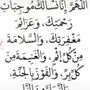 اللَّهُمَّ إِنَّا نَسْأَلُكَ مُوجِبَاتِ
رَحْمَتِكَ، وَعَزَائِمَ
مَغْفِرَتِكَ، وَالسَّلَامَةَ
مِنْ كُلِّ إِثْمٍ، وَالْغَنِيمَةَ مِنْ
كُلِّ بِرٍّ، وَالْفَوْزَ بِالْجَنَّةِ،